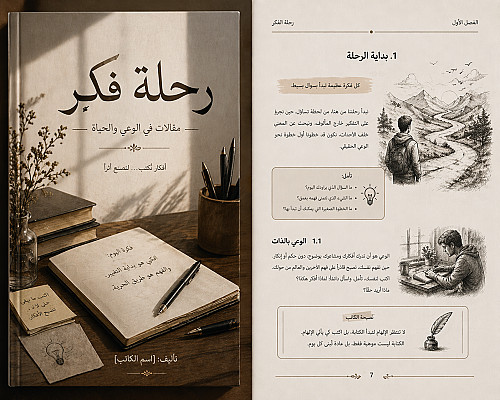 رحلة فكر
مقالات في الوعي والحياة
أفكار تُكتب... لتصنع أثراً
فكرة اليوم:
الفكر هو بداية التغيير،
والفهم هو طريق الحرية.
اكتب ما يبقى
تصنع الأفكار
تأليف: [اسم الكاتب]
الفصل الأول
رحلة الفكر
1. بداية الرحلة
كل فكرة عظيمة تبدأ بسؤال بسيط.
تبدأ رحلتنا من هنا، من لحظة تساؤل، حين نجرؤ
على التفكير خارج المألوف، ونبحث عن المعنى
خلف الأحداث، تكون قد خطونا أول خطوة نحو
الوعي الحقيقي.
تأمل:
ما السؤال الذي يراودك اليوم؟
ما الشيء الذي تتمنى فهمه بعمق؟
ما الخطوة الصغيرة التي يمكنك أن تبدأ بها؟
1.1 الوعي بالذات
الوعي هو أن تدرك أفكارك ومشاعرك بوضوح، دون حكم أو إنكار.
حين تفهم نفسك، تصبح قادراً على فهم الآخرين والعالم من حولك.
اكتب لنفسك، تأمل، واسأل دائماً: لماذا أفكر هكذا؟
ماذا أريد حقًا؟
نصيحة الكاتب
لا تنتظر الإلهام لتبدأ الكتابة، بل اكتب كي يأتي الإلهام.
الكتابة ليست موهبة فقط، بل عادة تُبنى كل يوم.
7